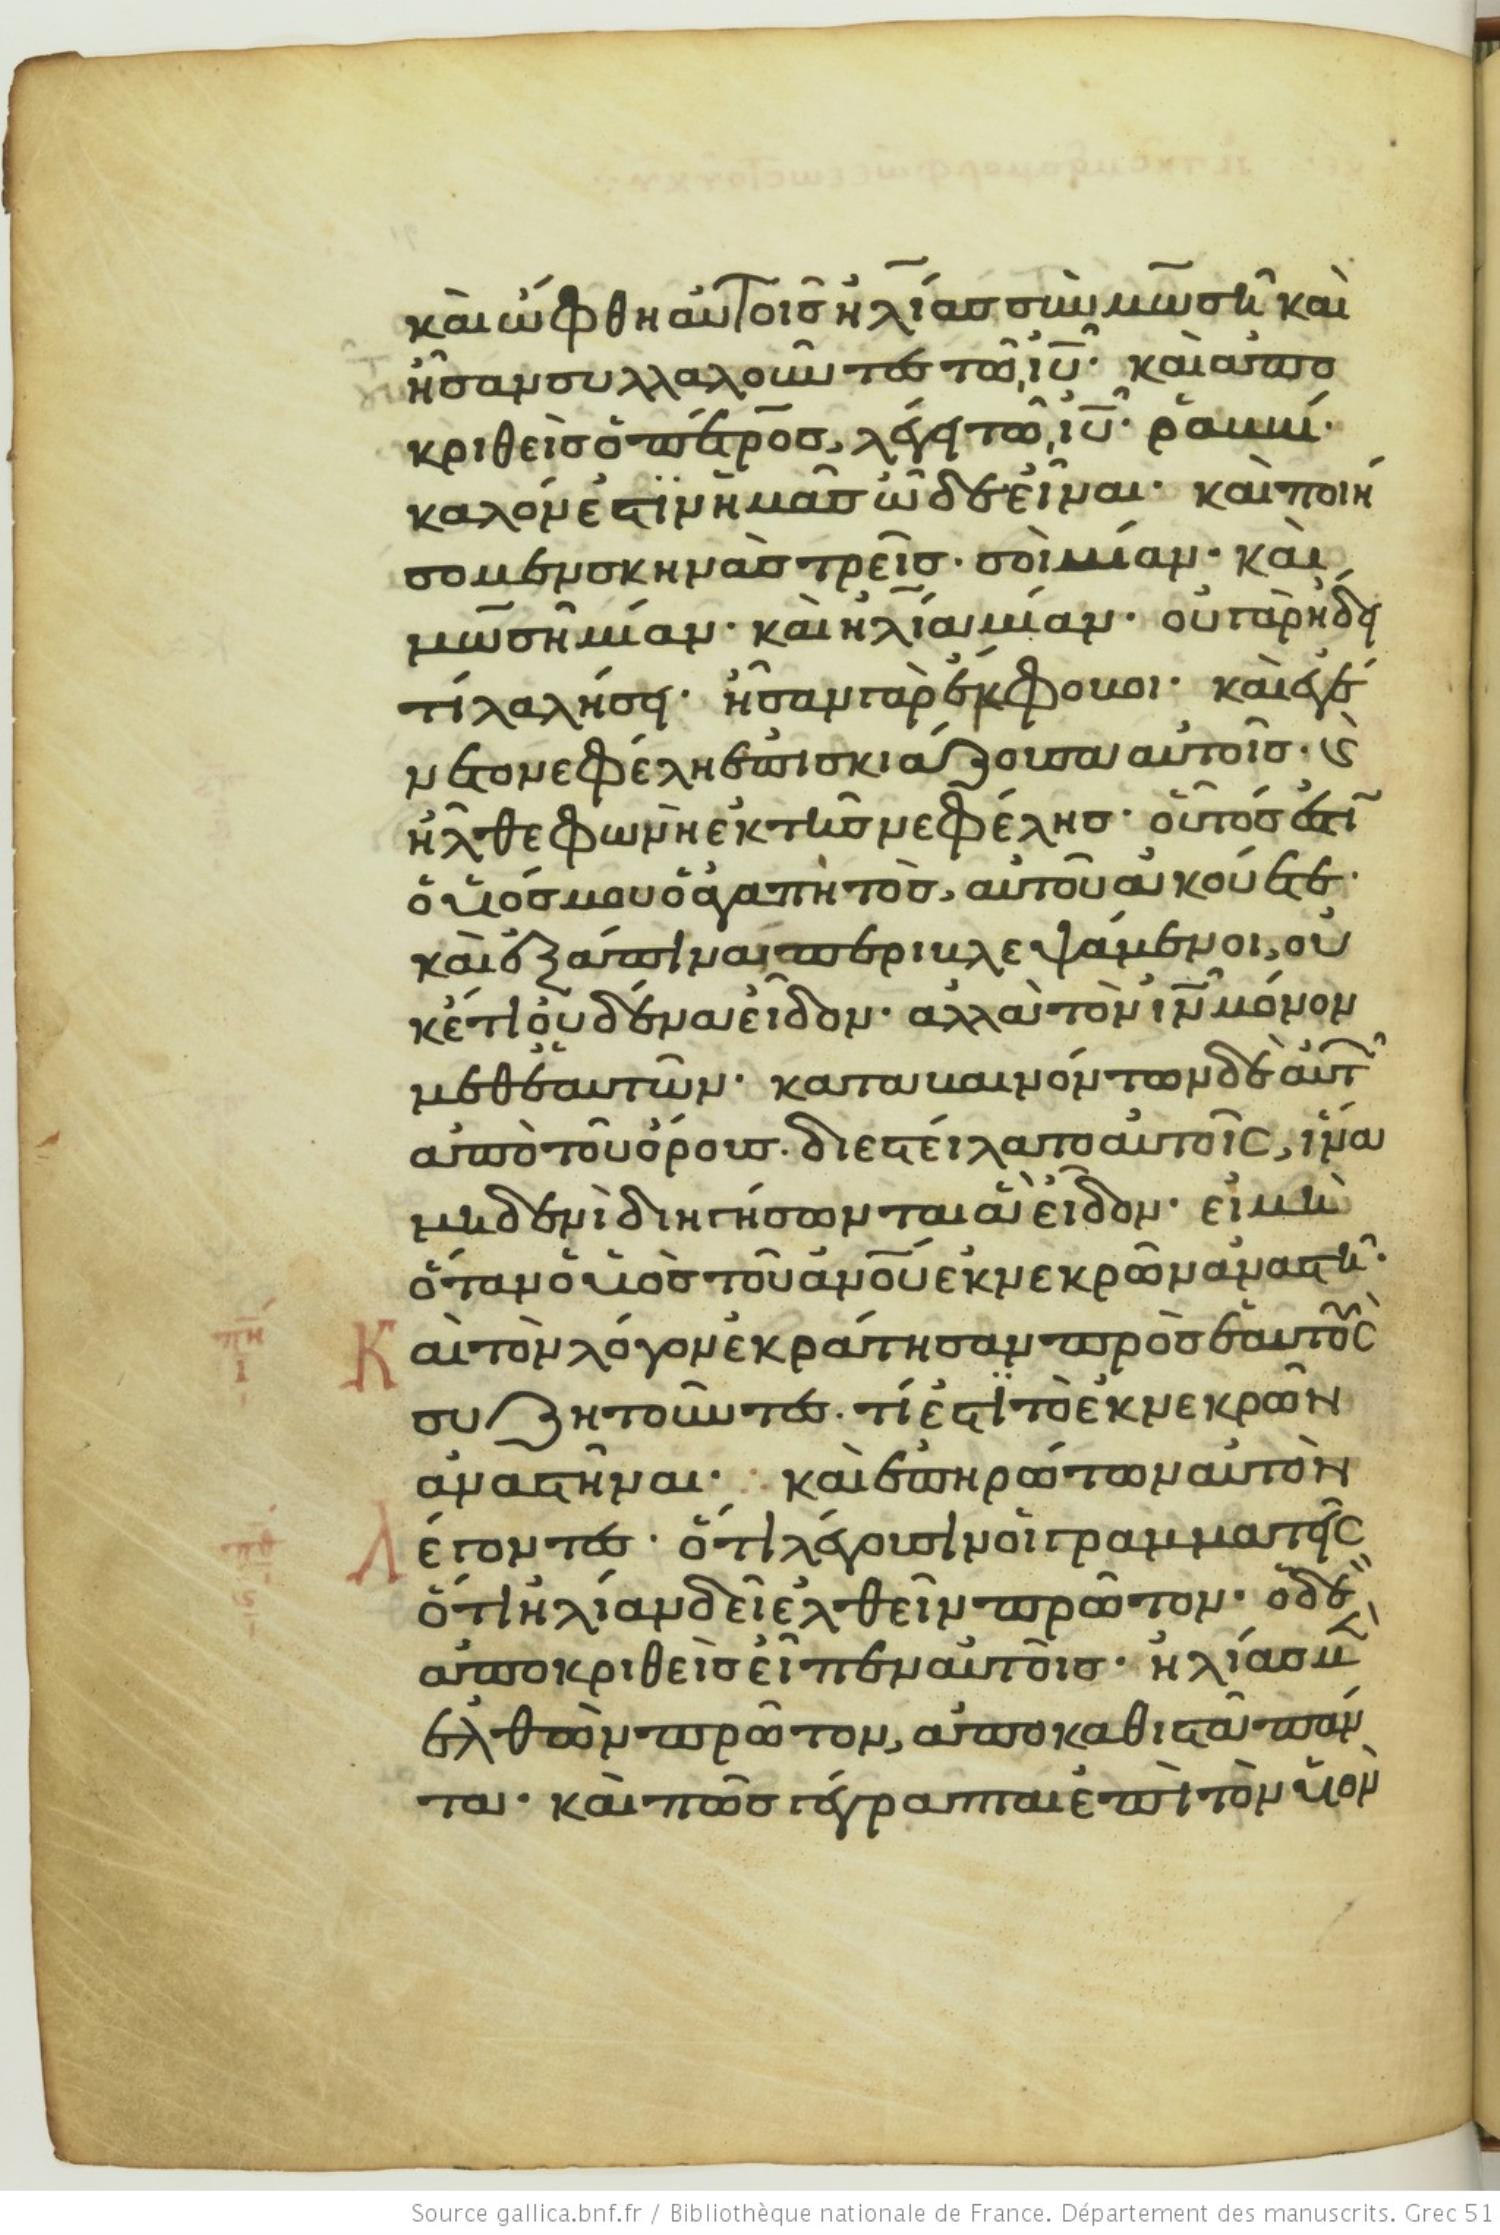 καὶ ὤφθη αὐτοῖς ἡλίας σὺν μωσῆ καὶ
ἦσαν συλλαλοῦντες τῶ ιυ· καὶ ἀπο
κριθεὶς ὁ πέτρος, λέγει τῶ ιυ· ῥαββί·
καλόν ἐστϊν ἡμᾶς ὧδε εἶναι· καὶ ποιή
σομεν σκηνὰς τρεῖς· σοὶ μίαν· καὶ
μωσῆ μίαν· καὶ ἡλία μίαν· οὐ γὰρ ἤδει
τί λαλήσει· ἦσαν γὰρ ἔκφοβοι· καὶ ἐγέ
νετο νεφέλη ἐπισκιάζουσα αὐτοῖς· κὲ
ἦλθε φωνὴ ἐκ τῆς νεφέλης· οὗτός ἐστι
ὁ υἱός μου ὁ ἀγαπητὸς, αὐτοῦ ἀκούετε·
καὶ ἐξάπινα περιβλεψάμενοι, οὐ
κέτι οὐδένα εἶδον· ἀλλὰ τὸν ιν μόνον
μεθ' ἑαυτῶν· καταβαινόντων δὲ αὐτ
ἀπὸ τοῦ ὄρους· διεστείλατο αὐτοῖς, ἵνα
μηδενὶ διηγήσωνται ἃ εἶδον· εἰ μὴ
ὅταν ὁ υἱὸς τοῦ ἀνου ἐκ νεκρῶν ἀναστῆ·
πη ι Καὶ τὸν λόγον ἐκράτησαν πρὸς ἑαυτοὺς
συζητοῦντες· τί ἐστϊ τὸ ἐκ νεκρῶν
ἀναστῆναι· καὶ ἐπηρώτων αὐτὸν
Λέγοντες· ὅτι λέγουσιν οἱ γραμματεῖς
ὅτι ἡλίαν δεῖ ἐλθεῖν πρῶτον· ὁ δὲ
ἀποκριθεὶς εἶπεν αὐτοῖς· ἡλίας μ
ἐλθὼν πρῶτον, ἀποκαθιστᾶ πάν
τα· καὶ πῶς γέγραπται ἐπὶ τὸν υἱὸν
Source gallica.bnf.fr / Bibliothèque nationale de France. Département des manuscrits. Grec 51